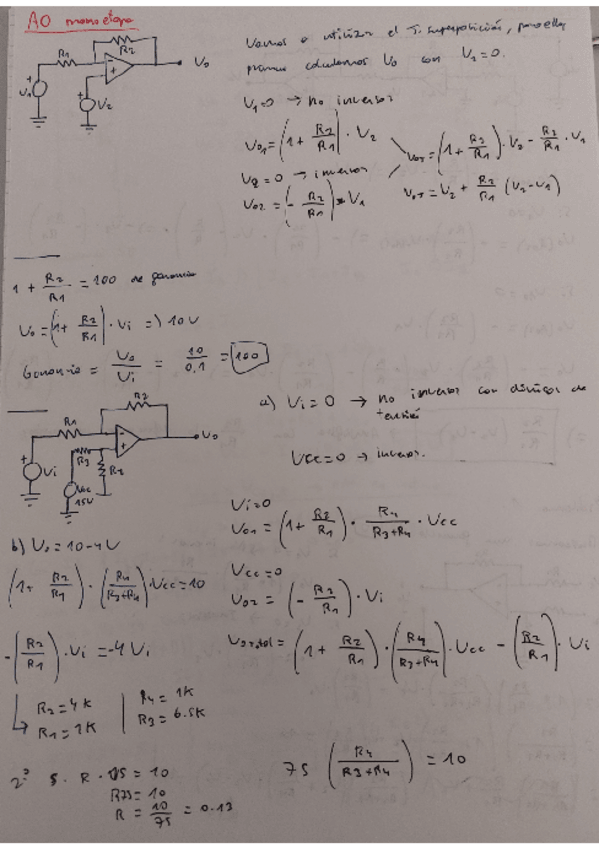 AO monoetapa
R2
R1
V0
V1
V2
Vamos a utilizar el T. superposición, para ello
primero calculamos V0 con V1=0.
V1=0 → no inversor
V01 = (1 + R2/R1) · V2
V2=0 → inversor
V02 = (- R2/R1) · V1
V0T = (1 + R2/R1) · V2 - R2/R1 · V1
V0T = V2 + R2/R1 (V2-V1)
1 + R2/R1 = 100 de ganancia
V0 = (1+ R2/R1) · Vi => 10V
Ganancia = V0/Vi = 10/0,1 = 100
R2
R1
V0
R3
R4
Vi
Vcc
15V
a) Vi = 0 → no inversor con divisor de
tensión
Vcc=0 → inversor.
Vi=0
V01 = (1+ R2/R1) · R4/(R3+R4) · Vcc
b) V0 = 10-4V
(1+ R2/R1) · (R4/(R3+R4)) · Vcc = 10
Vcc=0
V02 = (- R2/R1) · Vi
-(R2/R1) · Vi = -4 Vi
V0total = (1+ R2/R1) · (R4/(R3+R4)) · Vcc - (R2/R1) · Vi
R2 = 4K
R1 = 1K
R4 = 1K
R3 = 6.5K
75 (R4/(R3+R4)) = 10
5 · R · 15 = 10
R75 = 10
R = 10/75 = 0.13